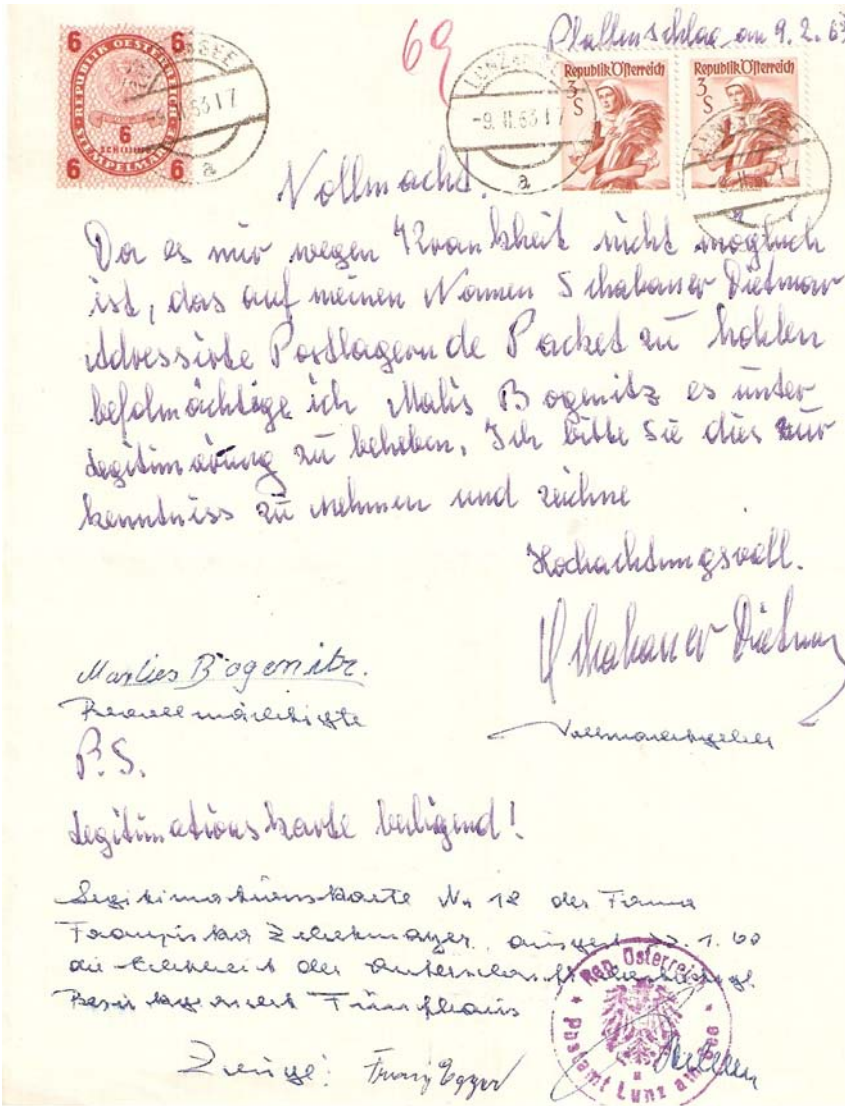 69
Plallenschlag am 9. 2. 63
6 6
REPUBLIK OESTERREICH
6
SCHILLING
STEMPELMARKE
6 6
SEE
-9. II. 63 17
a
LUNZ AM SEE
-9. II. 63 17
a
Republik Österreich
3
S
Republik Österreich
3
S
Vollmacht.
Da es mir wegen Krankheit nicht möglich
ist, das auf meinen Namen Schabauer Dietmar
Addressirte Postlagernde Packet zu hohlen
befolmächtige ich Malis Bogenitz es unter
Legitimirung zu beheben. Ich bitte Sie dies zur
kenntniss zu nehmen und zeichne
Hochachtungsvoll.
Schabauer Dietmar
Marlies Bogenitz.
Bevollmächtigte
Vollmachtgeber
P.S.
Legitimationskarte beiligend!
Legitimationskarte Nr 12 der Firma
Franziska ausgest. 1. 60
die Echtheit der Unterschrift
Bezirksgericht Fünfhaus
Zeuge: Franz Egger
Rep. Österreich
Postamt Lunz am See